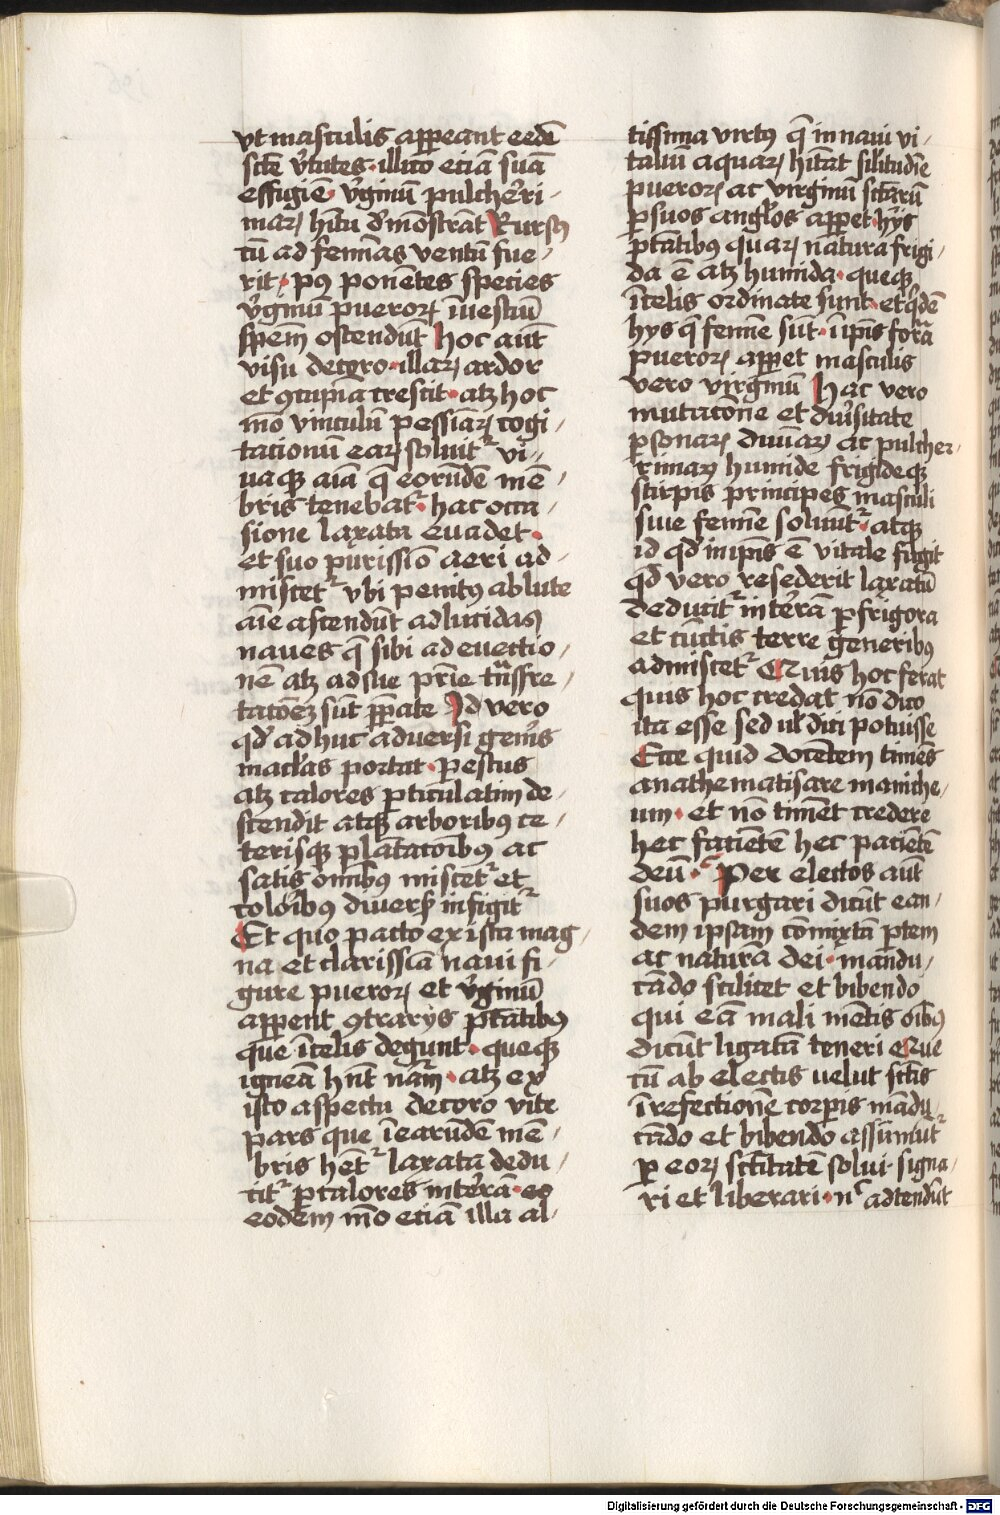 vt masculis appeant eedē
scē v̓tutes · illico eciā suā
effigiē · v̓ginū pulcher̓ri /
maꝝ hītu d̓mōstrāt Rursꝯ
cū ad femīas ventū fue /
rit · pꝯ ponētes species
v̓ginū pueroꝝ īuestiū
spēm ostendūt Hoc aūt
visu decoro · illaꝝ ardor
et ꝯcupīa crescit · atꝫ hoc
mō vinculū pessīaꝝ cogi /
tationū eaꝝ soluitᷣ vi /
uaqꝫ aīa q̄ eorūdē mē /
bris tenebatᷣ · hac occa /
sione laxata euadet ·
et suo purissīo aeri ad /
miscetᷣ vbi penitꝯ ablute
aīe ascendūt ad lucidas
naues q̄ sibi ad euectio /
nē atꝫ ad sue pr̄ie trāsfre /
tatōeꝫ sūt ꝑpate Id vero
qd̓ ad huc aduersi gen̓is
mac̓las portat · pestus
atꝫ calores ꝑticulatim de /
scendit atqꝫ arboribꝯ ce /
terisqꝫ plātatoībꝯ ac
satis oīnibꝯ miscetᷣ et
colōibꝯ diuers̓ infigitᷣ
Et quo pacto ex ista mag /
na et clarissīa naui fi /
gure pueroꝝ et v̓ginū
appent ꝯtrarijs ptātibꝯ
que ī celis degunt · queqꝫ
igneā hn̄t nām̄ · atꝫ ex
isto aspectu decoro vite
pars que ī earūdē mē /
bris hētᷣ laxata dedu /
citᷣ ꝑ calores in t̓rā · eo
eodem mō eciā illa al /
tissima virtꝯ q̄ in naui vi /
taliū aquaꝝ hītat sil̓itudīe
pueroꝝ ac virginū sctārū
ꝑ suos angl̓os appet · hijs
ptātibꝯ quaꝝ natura frigi /
da ē atꝫ humida · queqꝫ
ī celis ordinate sunt · et q̓dē
hijs q̄ femīe sūt · ī ip̄is forā
pueroꝝ appet masculis
vero virginū Hac vero
mutacōne et diu̓sitate
ꝑsonaꝝ diuīaꝝ ac pulcher /
rimaꝝ humide frigideqꝫ
stirpis principes masculi
siue femīe soluūtᷣ · atqꝫ
id qd̓ in ip̄is ē vitale fugit
qd̓ vero resederit laxatū
deducitᷣ in t̓rā ꝑ frigora
et cūctis terre generibꝯ
admiscetᷣ Quis hoc ferat
quis hoc credat nō dico
ita esse sed ul̓ dici potuisse
Ecce quid docētem timēs
anathematisare maniche /
um · et nō timēt credere
hec faciētē hec paciētē
deū · Per electos aūt
suos purgari dicūt ean /
dem ipsam cōmixtā ꝑtem
ac naturā dei · māndu /
cādo scilicet et bibendo
qui eā mali mētis oībꝯ
dicūt ligatā teneri Que
cū ab electis uelut sctīs
ī refectionē corꝑis mādu /
cādo et bibendo assūmitᷣ
ꝑ eoꝝ sctītatē solui · signa /
ri et liberari · n̄ᶜ adtendūt
Digitalisierung gefördert durch die Deutsche Forschungsgemeinschaft - DFG